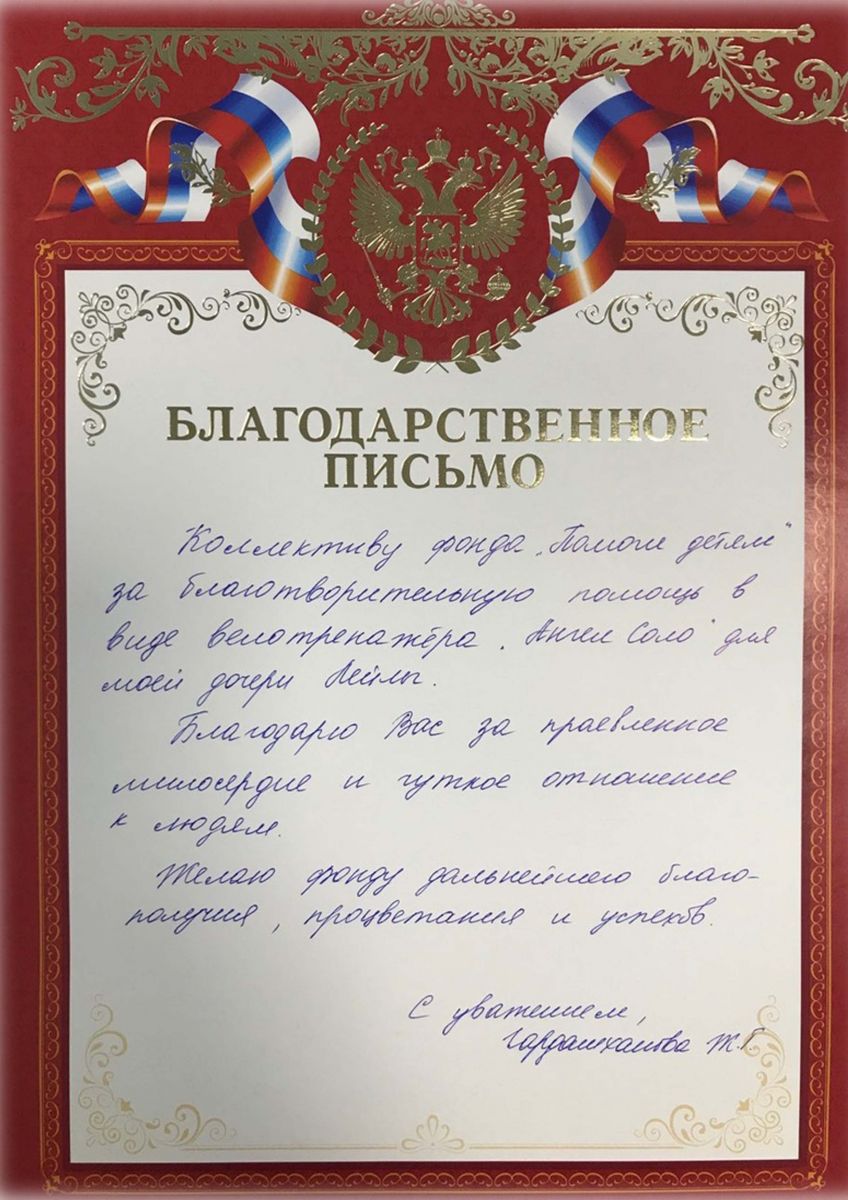 БЛАГОДАРСТВЕННОЕ
ПИСЬМО
Коллективу фонда „Помоги детям"
за благотворительную помощь в
виде велотренажёра „Ангел Соло" для
моей дочери Лейлы.
Благодарю Вас за проевленное
милосердие и чуткое отношение
к людям.
Желаю фонду дальнейшего благо-
получия, процветания и успехов.
С уважением,
Ж.Г.